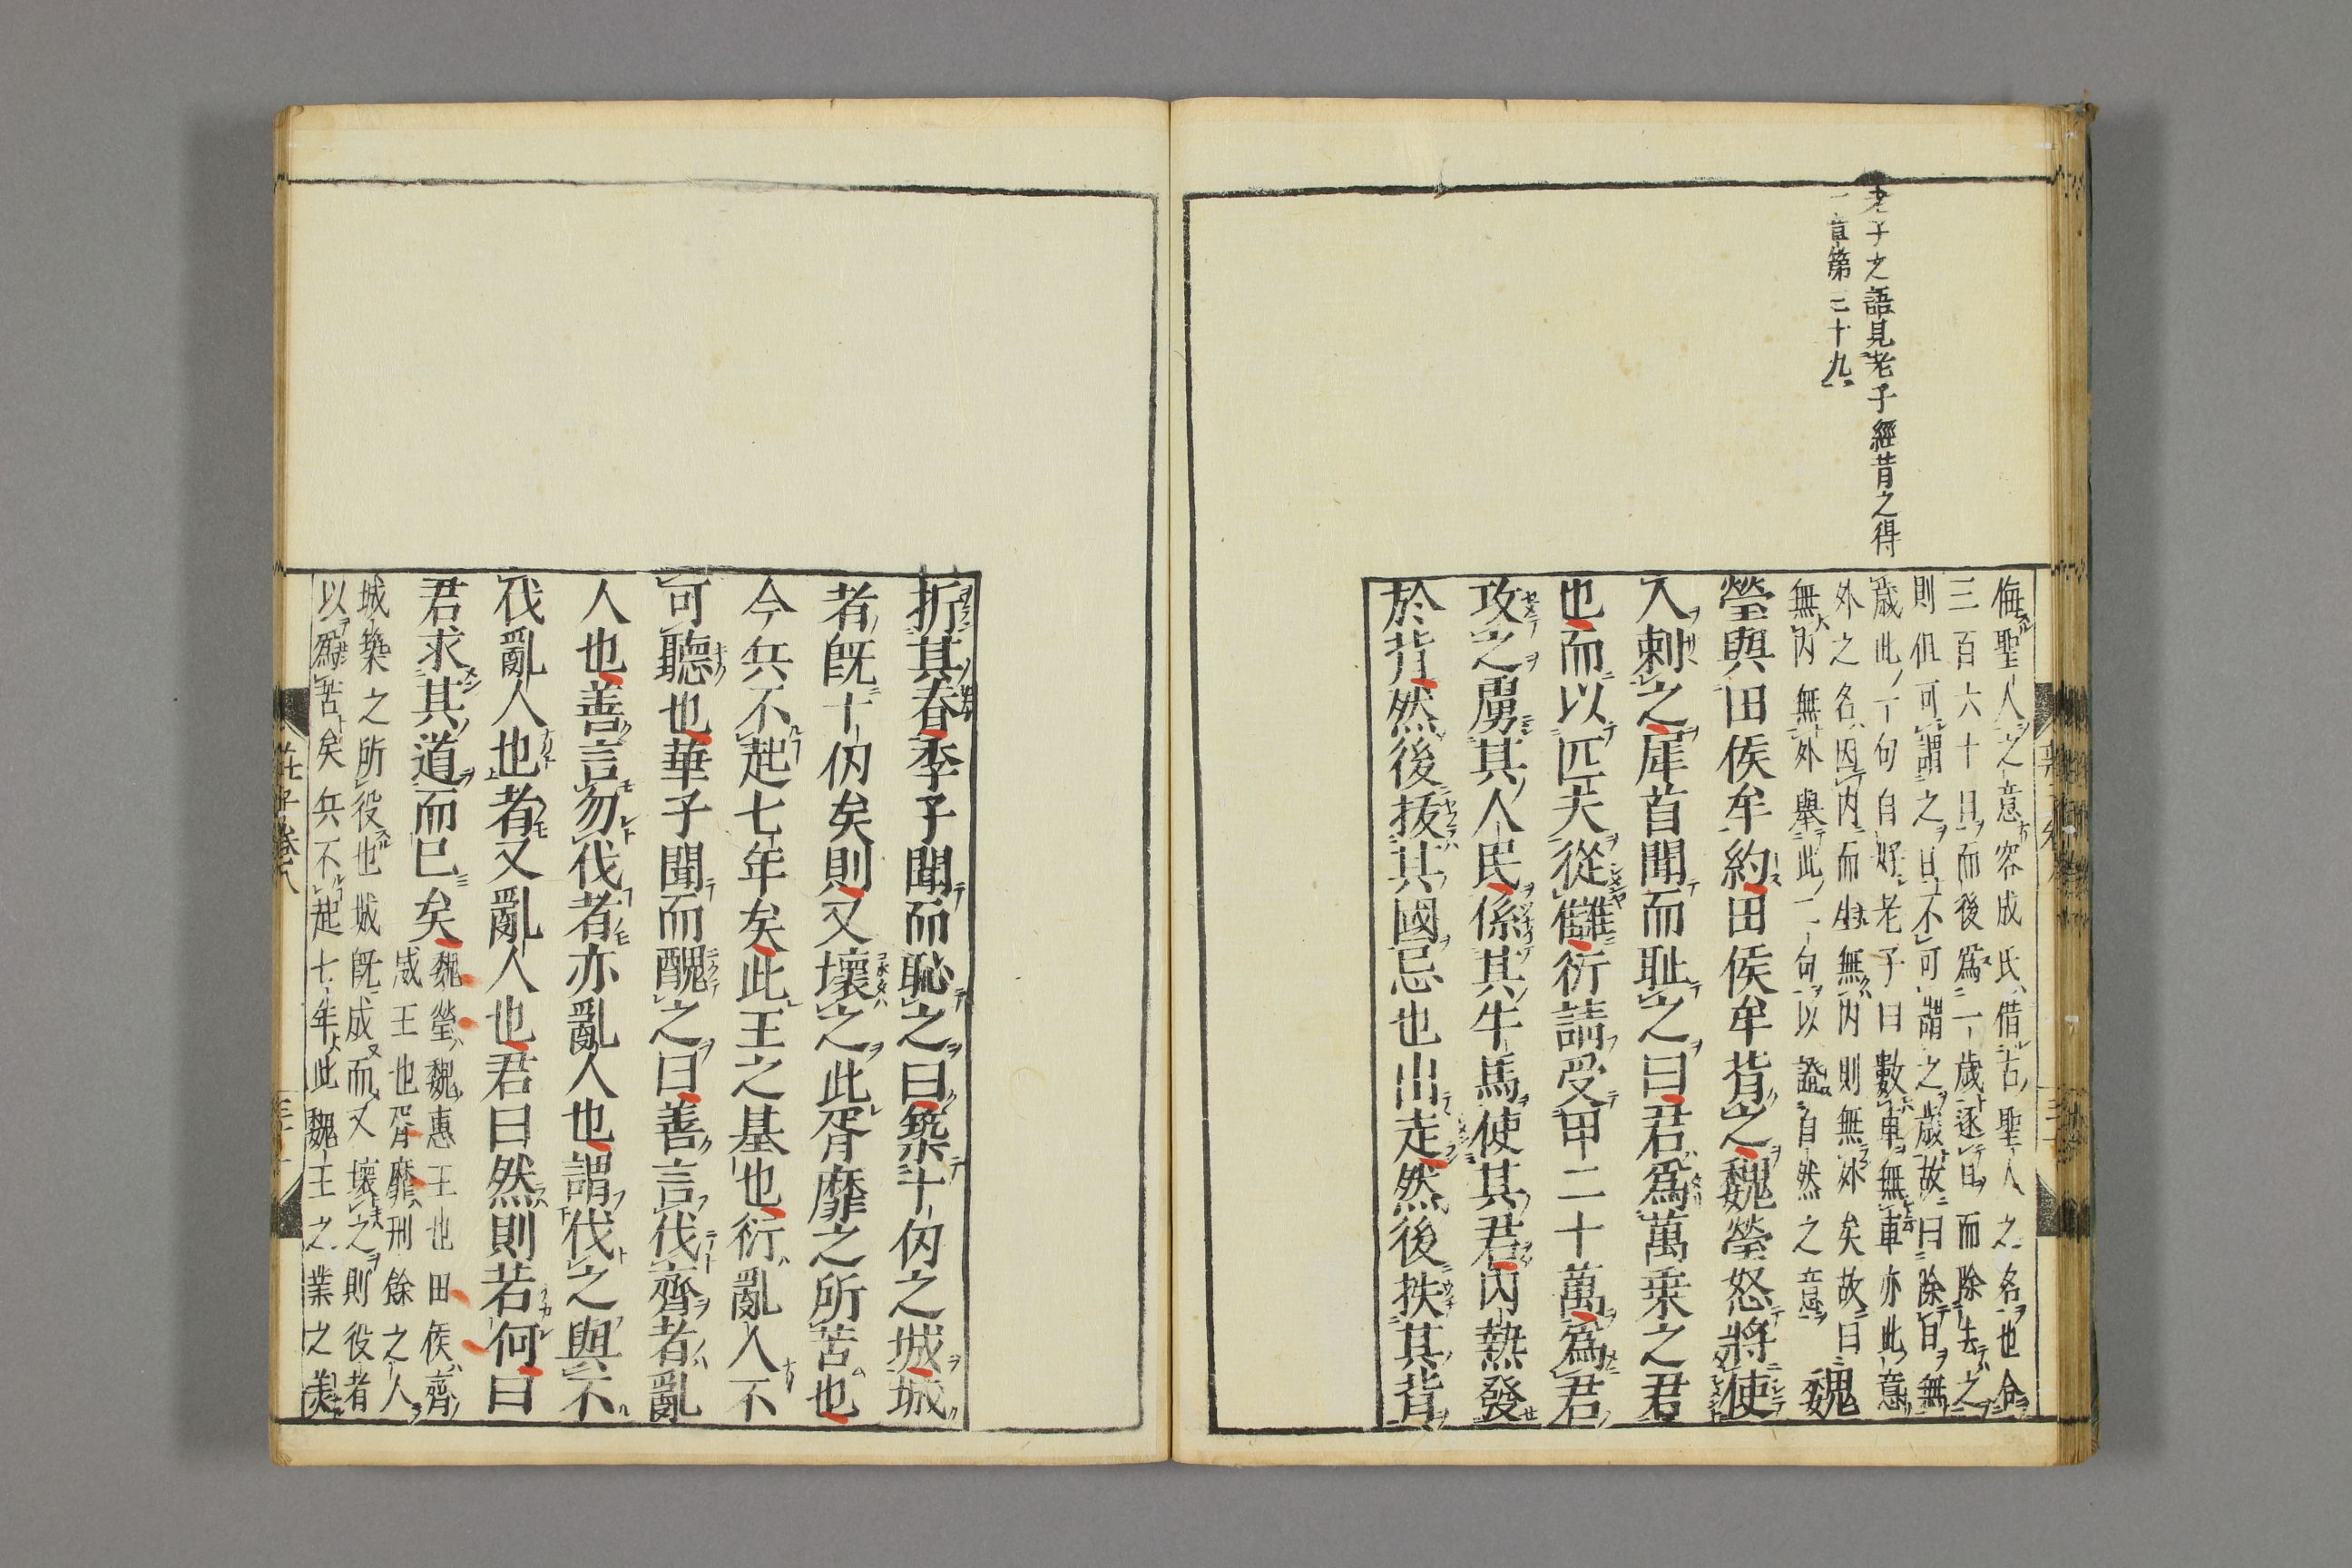 老子之語見老子經昔之得
一首第三十九
侮聖人之意容成氏借古聖人之名也合
三百六十日而後爲一歲逐日而除去之
則但可謂之日不可謂之歲故曰除日無
歲此一句自好老子曰數車無車亦此意
外之名因内而生無内則無外矣故曰
無内無外舉此二句以證自然之意 魏
瑩與田侯牟約田侯牟背之魏瑩怒將使
人刺之犀首聞而耻之曰君爲萬乗之君
也而以匹夫從讎衍請受甲二十萬爲君
攻之虜其人民係其牛馬使其君内熱發
於背然後拔其國忌也出走然後抶其背
折其脊季子聞而恥之曰築十仭之城城
者既十仭矣則又壞之此胥靡之所苦也
今兵不起七年矣此王之基也衍亂人不
可聽也華子聞而醜之曰善言伐齊者亂
人也善言勿伐者亦亂人也謂伐之與不
伐亂人也者又亂人也君曰然則若何曰
君求其道而已矣 魏瑩魏惠王也田侯齊
威王也胥靡刑餘之人
城築之所役也城既成而又壞之則役者
以爲苦矣兵不起七年此魏王之業之美
莊子卷八